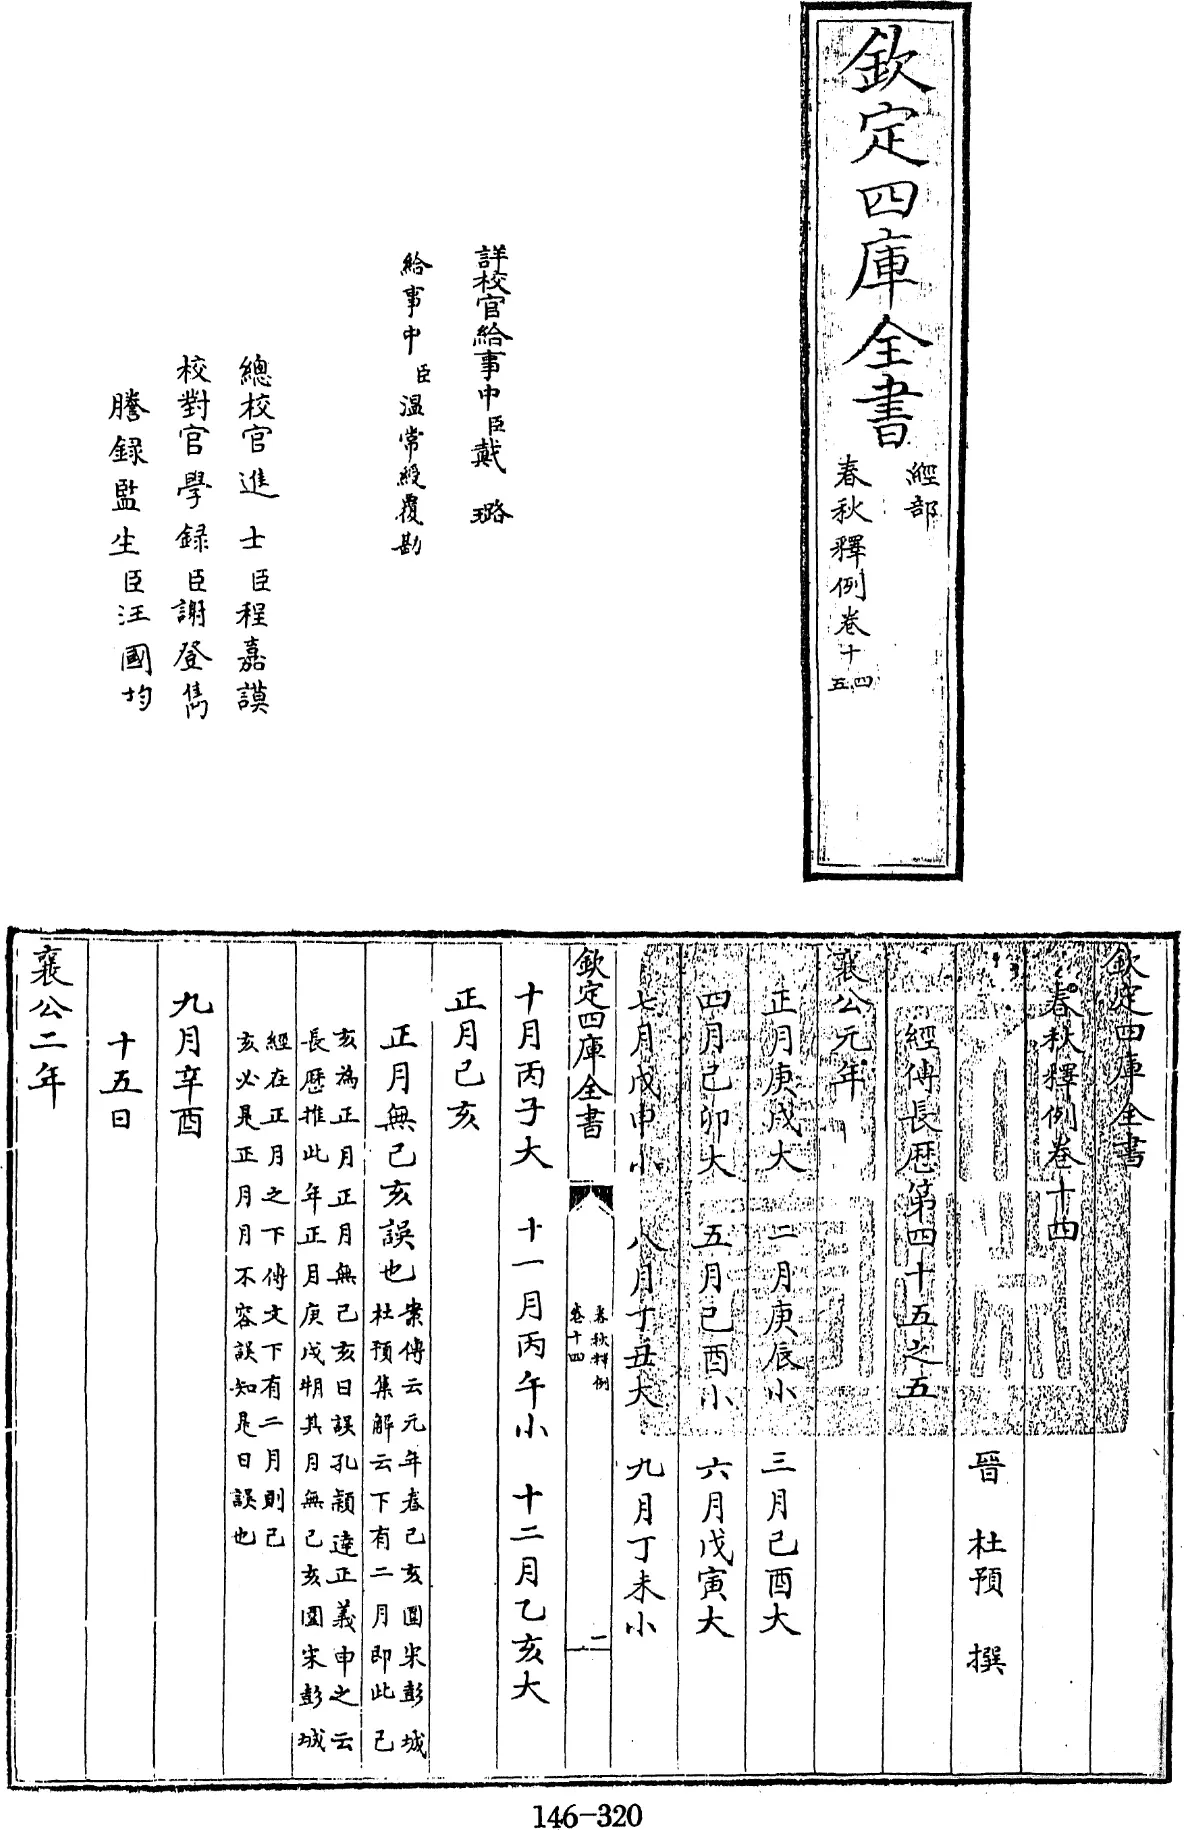 欽定四庫全書
經部
春秋釋例卷十四
五
詳校官給事中臣戴璐
給事中臣温常綬覆勘
總校官進士臣程嘉謨
校對官學録臣謝登雋
謄録監生臣汪國均
欽定四庫全書
春秋釋例卷十四
晉 杜預 撰
經傳長歴第四十五之五
襄公元年
正月庚戌大 二月庚辰小 三月己酉大
四月己卯大 五月己酉小 六月戊寅大
七月戊申小 八月丁丑大 九月丁未小
欽定四庫全書
春秋釋例
卷十四
一
二
十月丙子大 十一月丙午小 十二月乙亥大
正月己亥
正月無己亥誤也
案傳云元年春己亥圍宋彭城
杜預集解云下有二月即此己
亥為正月正月無己亥日誤孔穎達正義申之云
長歴推此年正月庚戌朔其月無己亥圍宋彭城
經在正月之下傳文下有二月則己
亥必是正月月不容誤知是日誤也
九月辛酉
十五日
襄公二年
146-320